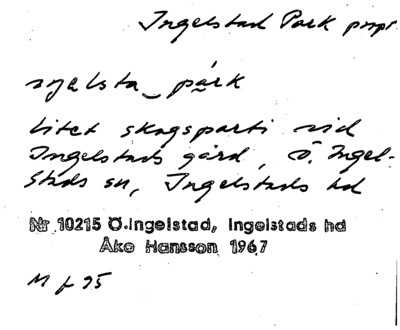 Ingelstad Park propr
ŋəlsta‿park
Litet skogsparti vid
Ingelstads gård, Ö. Ingel-
stads sn, Ingelstads hd
Nr 10215 Ö.Ingelstad, Ingelstads hd
Åke Hansson 1967
M f 95